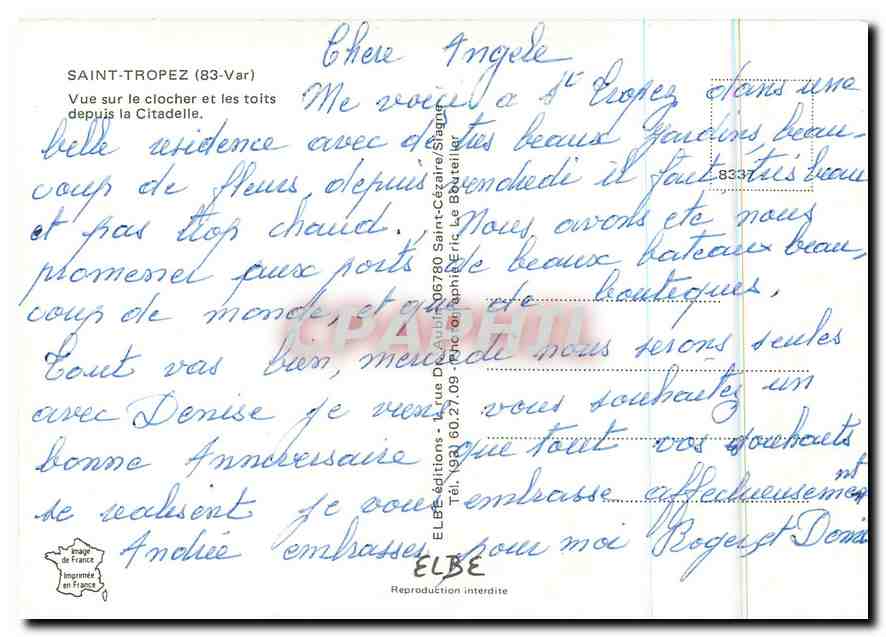 Chere Angele
SAINT-TROPEZ (83-Var)
Vue sur le clocher et les toits
depuis la Citadelle.
Me voici a St Tropez dans une
belle residence avec de tres beaux jardins, beau-
coup de fleurs, depuis vendredi il fait très beau
et pas trop chaud. Nous avons ete nous
promener aux ports de beaux bateaux beau,
coup de monde, et que de bouteques,
Tout vas bien, mercredi nous serons seules
avec Denise je viens vous souhaitez un
bonne Anniversaire que tout vos souhaits
se realisent je vous embrasse affectueusement
Andrée embrasses pour moi Roger et Denise
8337
ELBE éditions - 1, rue Du Aubin 06780 Saint-Cézaire/Siagne
Tél. (93) 60.27.09 - Photographie Eric Le Bouteiller
CPAPHIL
Image
de France
Imprimée
en France
ELBE
Reproduction interdite